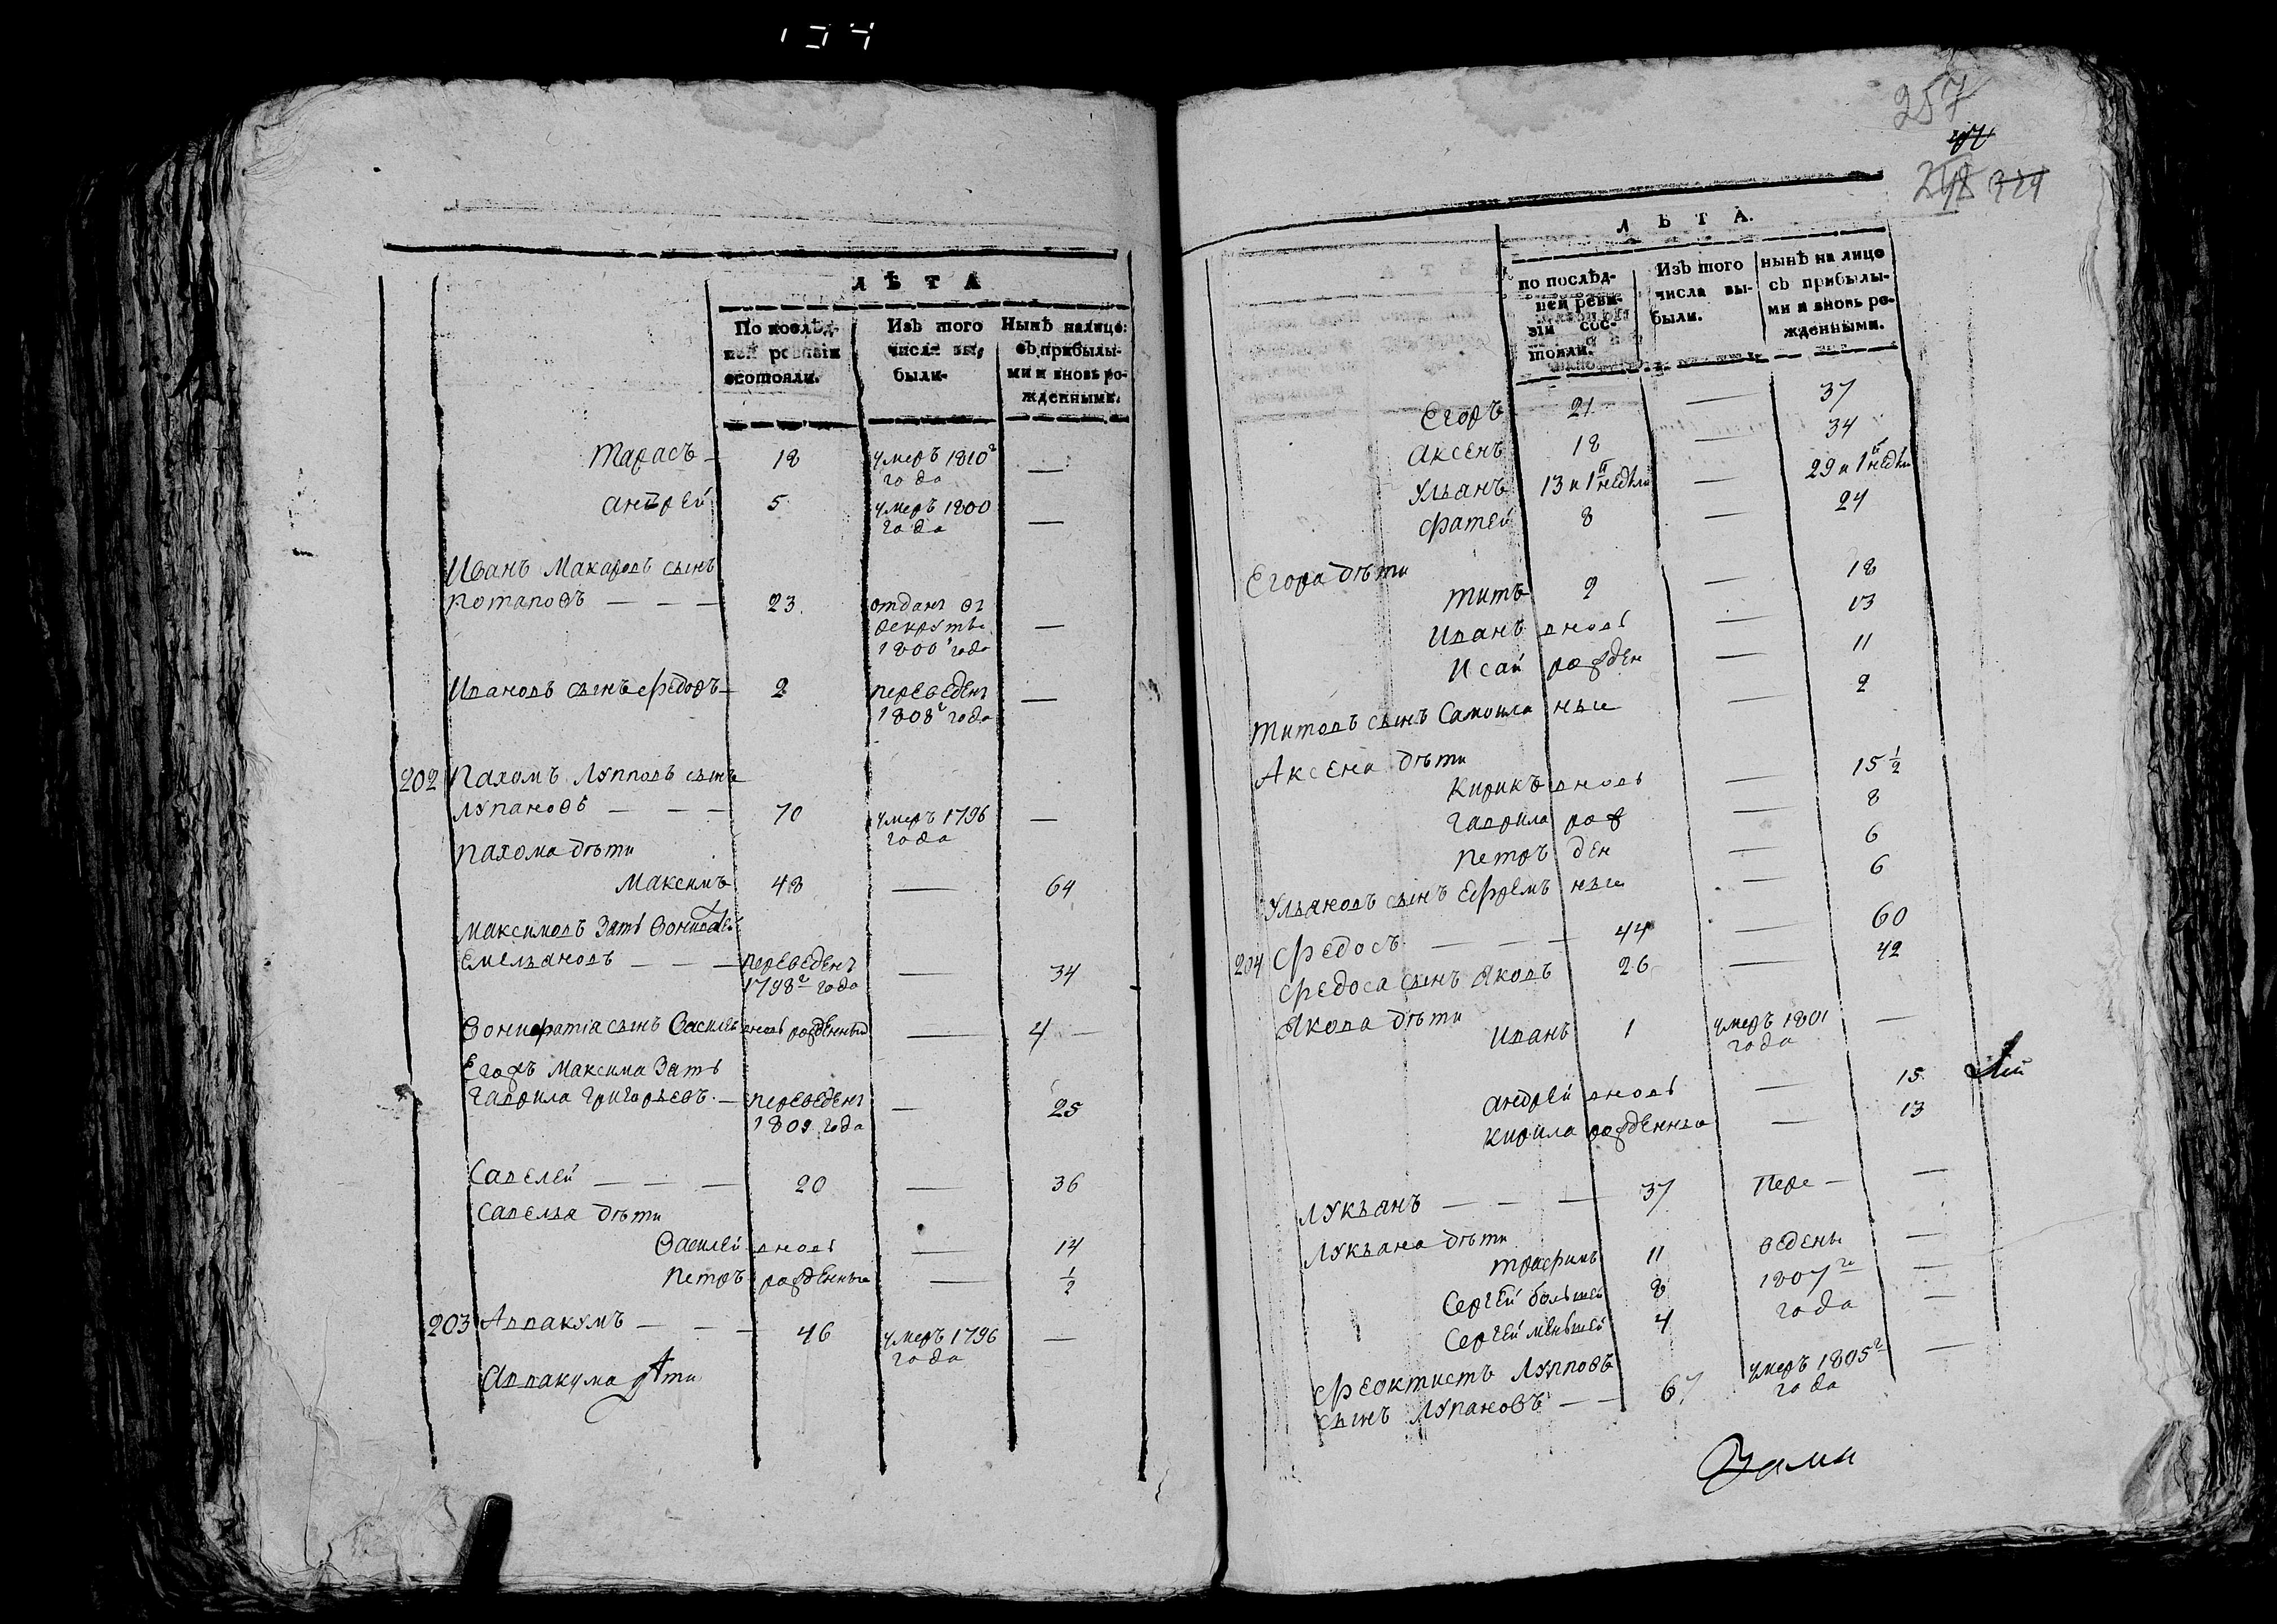 ЛѢТА
По послѣд-
ней ревизіи
состояли.
Изъ того
числа вы-
были.
Нынѣ налицо
съ прибылы-
ми и вновь ро-
жденными.
Тарасъ — 18 умеръ 1810г —
года
андрей 5 умеръ 1800 —
года
Иванъ Макаровъ сынъ
потаповъ — — — 23 отданъ въ —
рекруты
1800г года
Ивановъ сынъ Федоръ — 2 переведенъ —
1808г года
202 Пахомъ Лупповъ сынъ
лупановъ — — — 70 умеръ 1796 —
года
пахома дѣти
Максимъ 48 — 64
максимовъ зять
Емельяновъ — — — переведенъ — 34
1798г года
Вонифатіа сынъ Василей вновь рожденный — 4 —
Егоръ Максима зять
гаврила григорьевъ — переведенъ — 25
1809 года
Савелей — — — 20 — 36
савелья дѣти
Василей вновь — 14
петръ рожденные — 1/2
203 Аввакумъ — — — 46 умеръ 1796 —
года
аввакума дѣти
257
ЛѢТА.
по послѣд-
ней реви-
зіи сос-
тояли.
Изъ того
числа вы-
были.
нынѣ на лицо
съ прибылы-
ми и вновь ро-
жденными.
Егоръ 21 — 37
аксенъ 18 — 34
ульянъ 13 и 1й недѣли — 29 и 1й недѣли
фатей 8 — 24
Егора дѣти
титъ 2 — 18
иванъ вновь — 13
исай рожден — 11
титовъ сынъ Самоила ные — 2
Аксена дѣти
кирикъ вновь — 15 1/2
гаврила рож — 8
петръ ден — 6
ульяновъ сынъ Ефремъ ные — 6
204 федосъ — — — 44 — 60
федоса сынъ яковъ 26 — 42
Якова дѣти
иванъ 1 умеръ 1801 —
года
андрей вновь — 15
кирила рожденные — 13
лукьянъ — — — 37 пере — —
лукьяна дѣти
трофимъ 11 ведены —
Сергей большей 8 1807го —
Сергей меньшей 4 года —
феоктистъ лупповъ
сынъ лупановъ — — 67 умеръ 1805г —
года